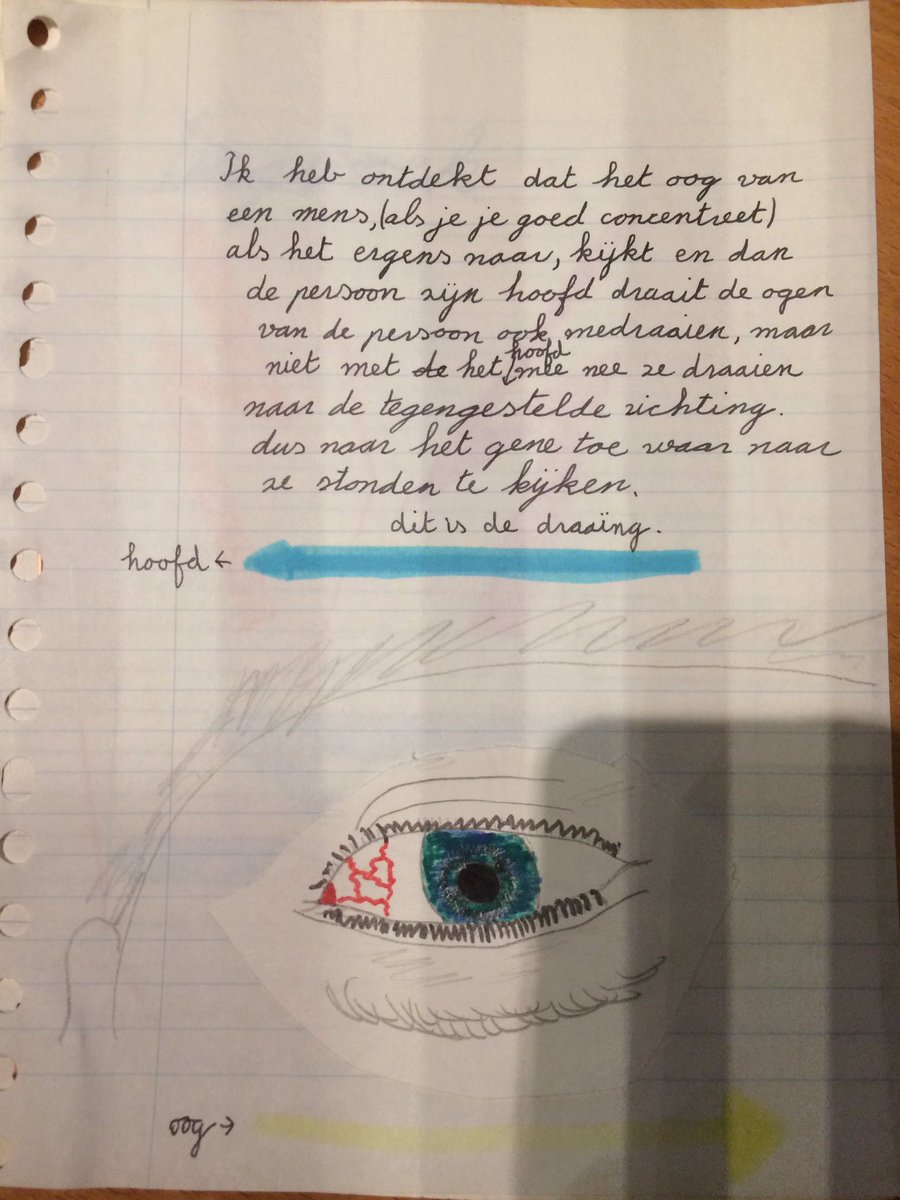 Ik heb ontdekt dat het oog van
een mens, (als je je goed concentreet)
als het ergens naar, kijkt en dan
de persoon zijn hoofd draait de ogen
van de persoon ook medraaien, maar
niet met de het hoofd mee nee ze draaien
naar de tegengestelde richting.
dus naar het gene toe waar naar
ze stonden te kijken.
dit is de draaïng.
hoofd ←
oog →